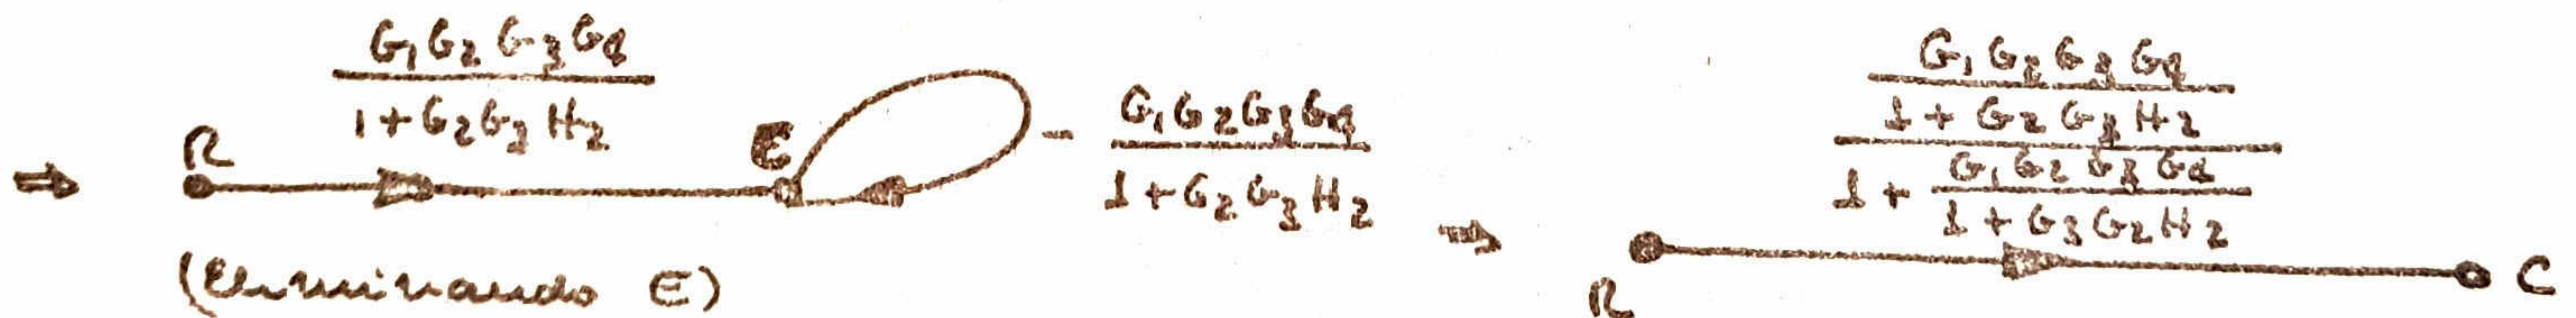 ⇒ R G₁G₂G₃G₄ / 1+G₂G₃H₂ C - G₁G₂G₃G₄ / 1+G₂G₃H₂
(Eliminando C)
⇒ R (G₁G₂G₃G₄ / 1+G₂G₃H₂) / (1+ G₁G₂G₃G₄ / 1+G₃G₂H₂) C